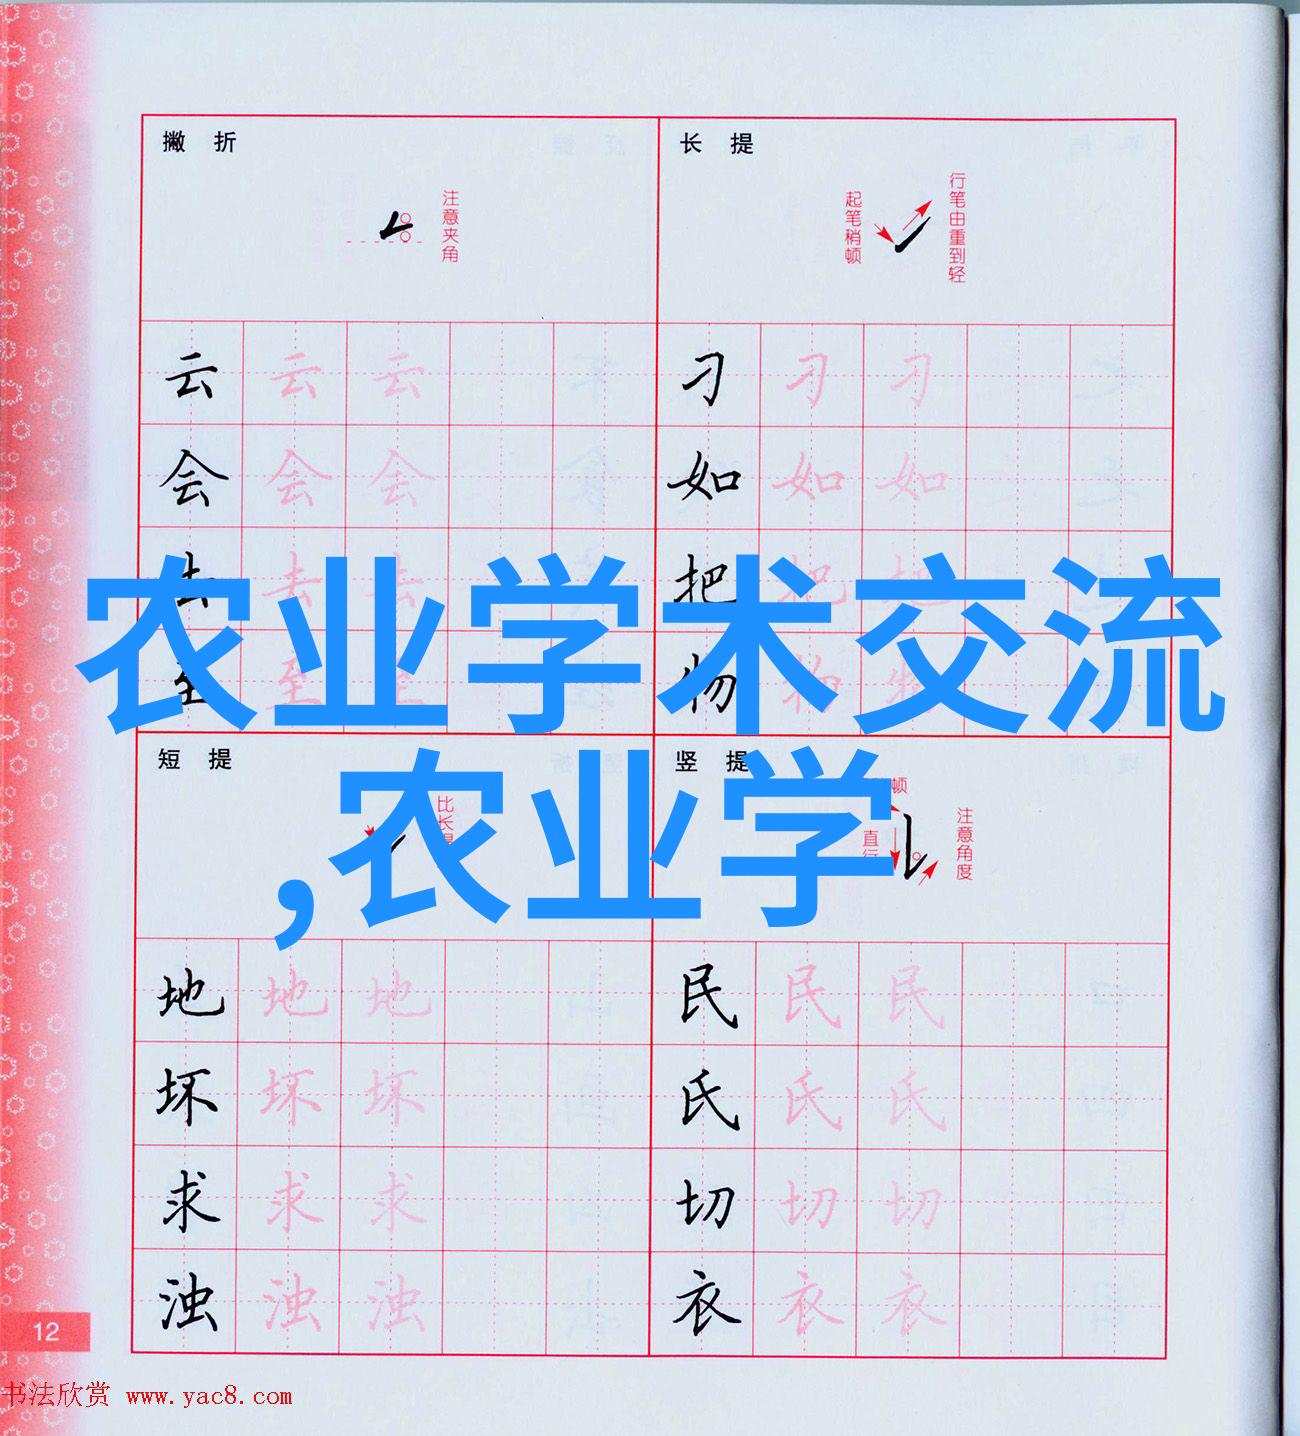 撇 折
注意夹角
云 云 云
会 会 会
去 去 去
至 至 至
长 提
起笔稍顿
行笔由重到轻
刁 刁 刁
如 如 如
把 把 把
物 物 物
农业学术交流
,农业学
短 提
比长
地 地 地
坏 坏 坏
求 求 求
浊 浊 浊
竖 提
顿
直行
注意角度
民 民 民
氏 氏 氏
切 切 切
衣 衣 衣
12
书法欣赏 www.yac8.com